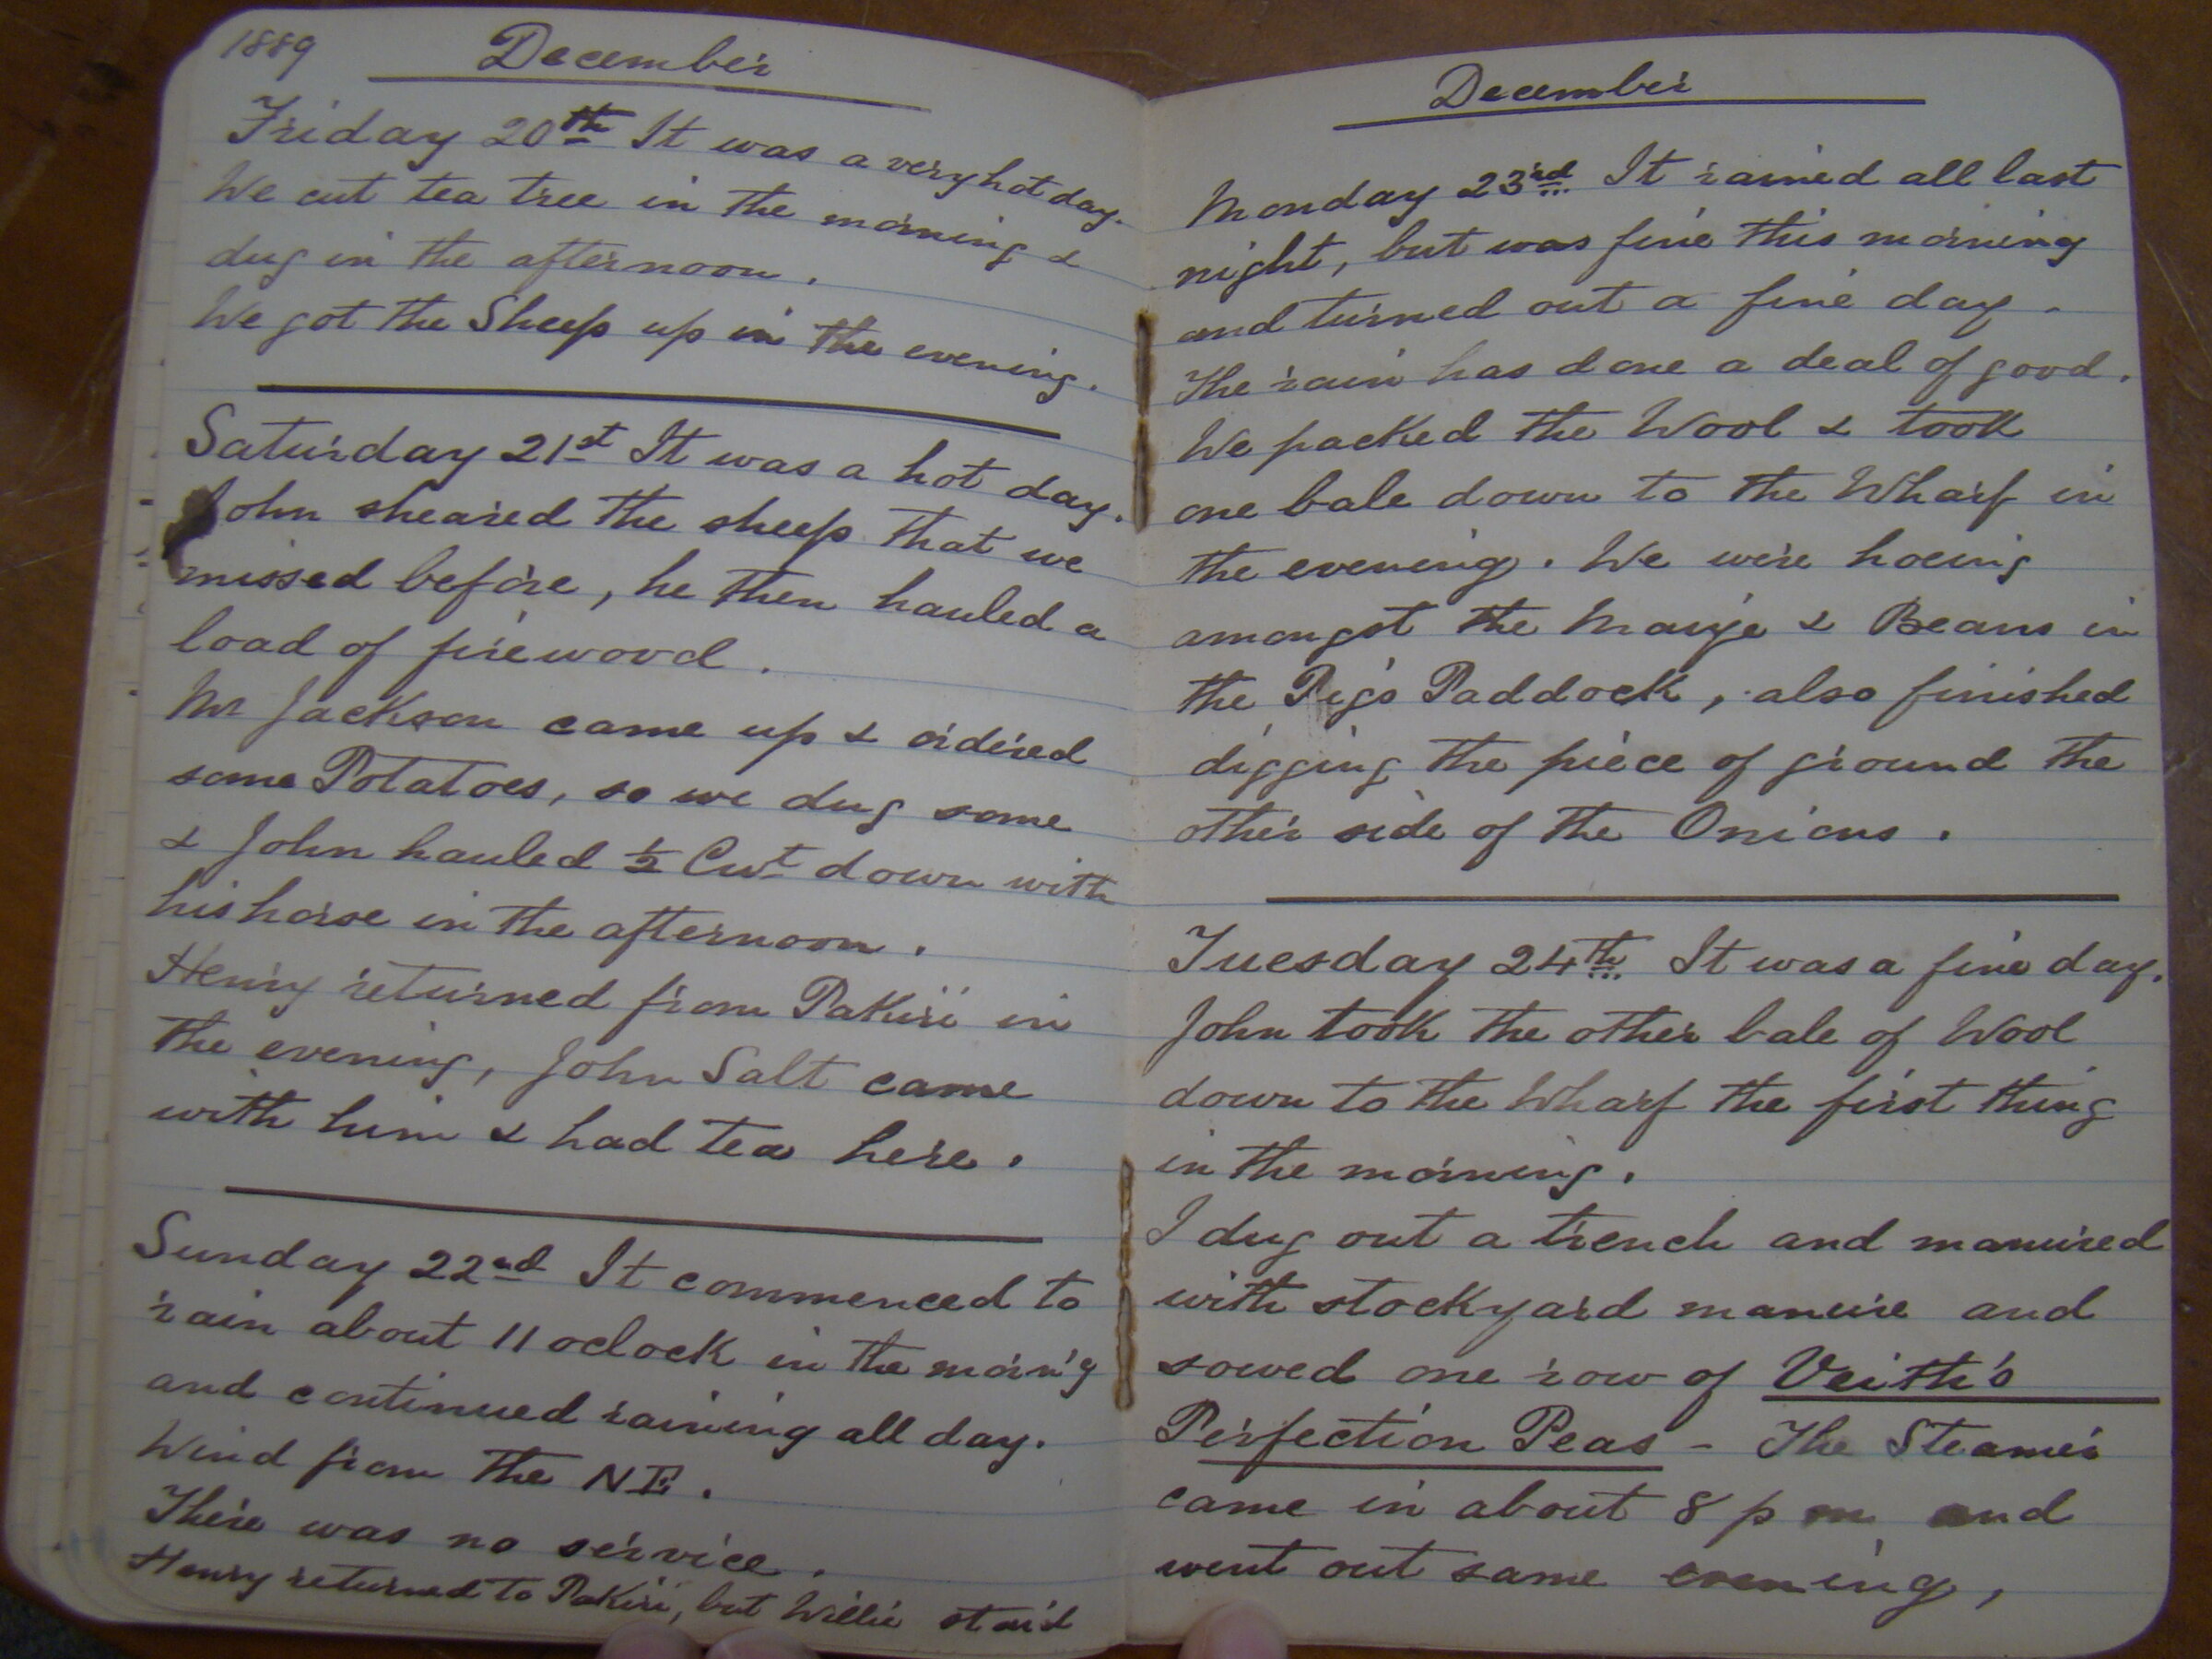 1889 December
Friday 20th It was a very hot day.
We cut tea tree in the morning &
dug in the afternoon.
We got the Sheep up in the evening.
Saturday 21st It was a hot day.
John sheared the sheep that we
missed before, he then hauled a
load of firewood.
Mr Jackson came up & ordered
some Potatoes, so we dug some
& John hauled ½ Cwt down with
his horse in the afternoon.
Henry returned from Pakiri in
the evening, John Salt came
with him & had tea here.
Sunday 22nd It commenced to
rain about 11 oclock in the morn'g
and continued raining all day.
Wind from the NE.
There was no service.
Henry returned to Pakiri, but Willie staid
December
Monday 23rd It rained all last
night, but was fine this morning
and turned out a fine day.
The rain has done a deal of good.
We packed the Wool & took
one bale down to the Wharf in
the evening. We were hoeing
amongst the Maize & Beans in
the Pigs Paddock, also finished
digging the piece of ground the
other side of the Onions.
Tuesday 24th It was a fine day.
John took the other bale of Wool
down to the Wharf the first thing
in the morning.
I dug out a trench and manured
with stockyard manure and
sowed one row of Veitth's
Perfection Peas - The Steamer
came in about 8 p m and
went out same evening,